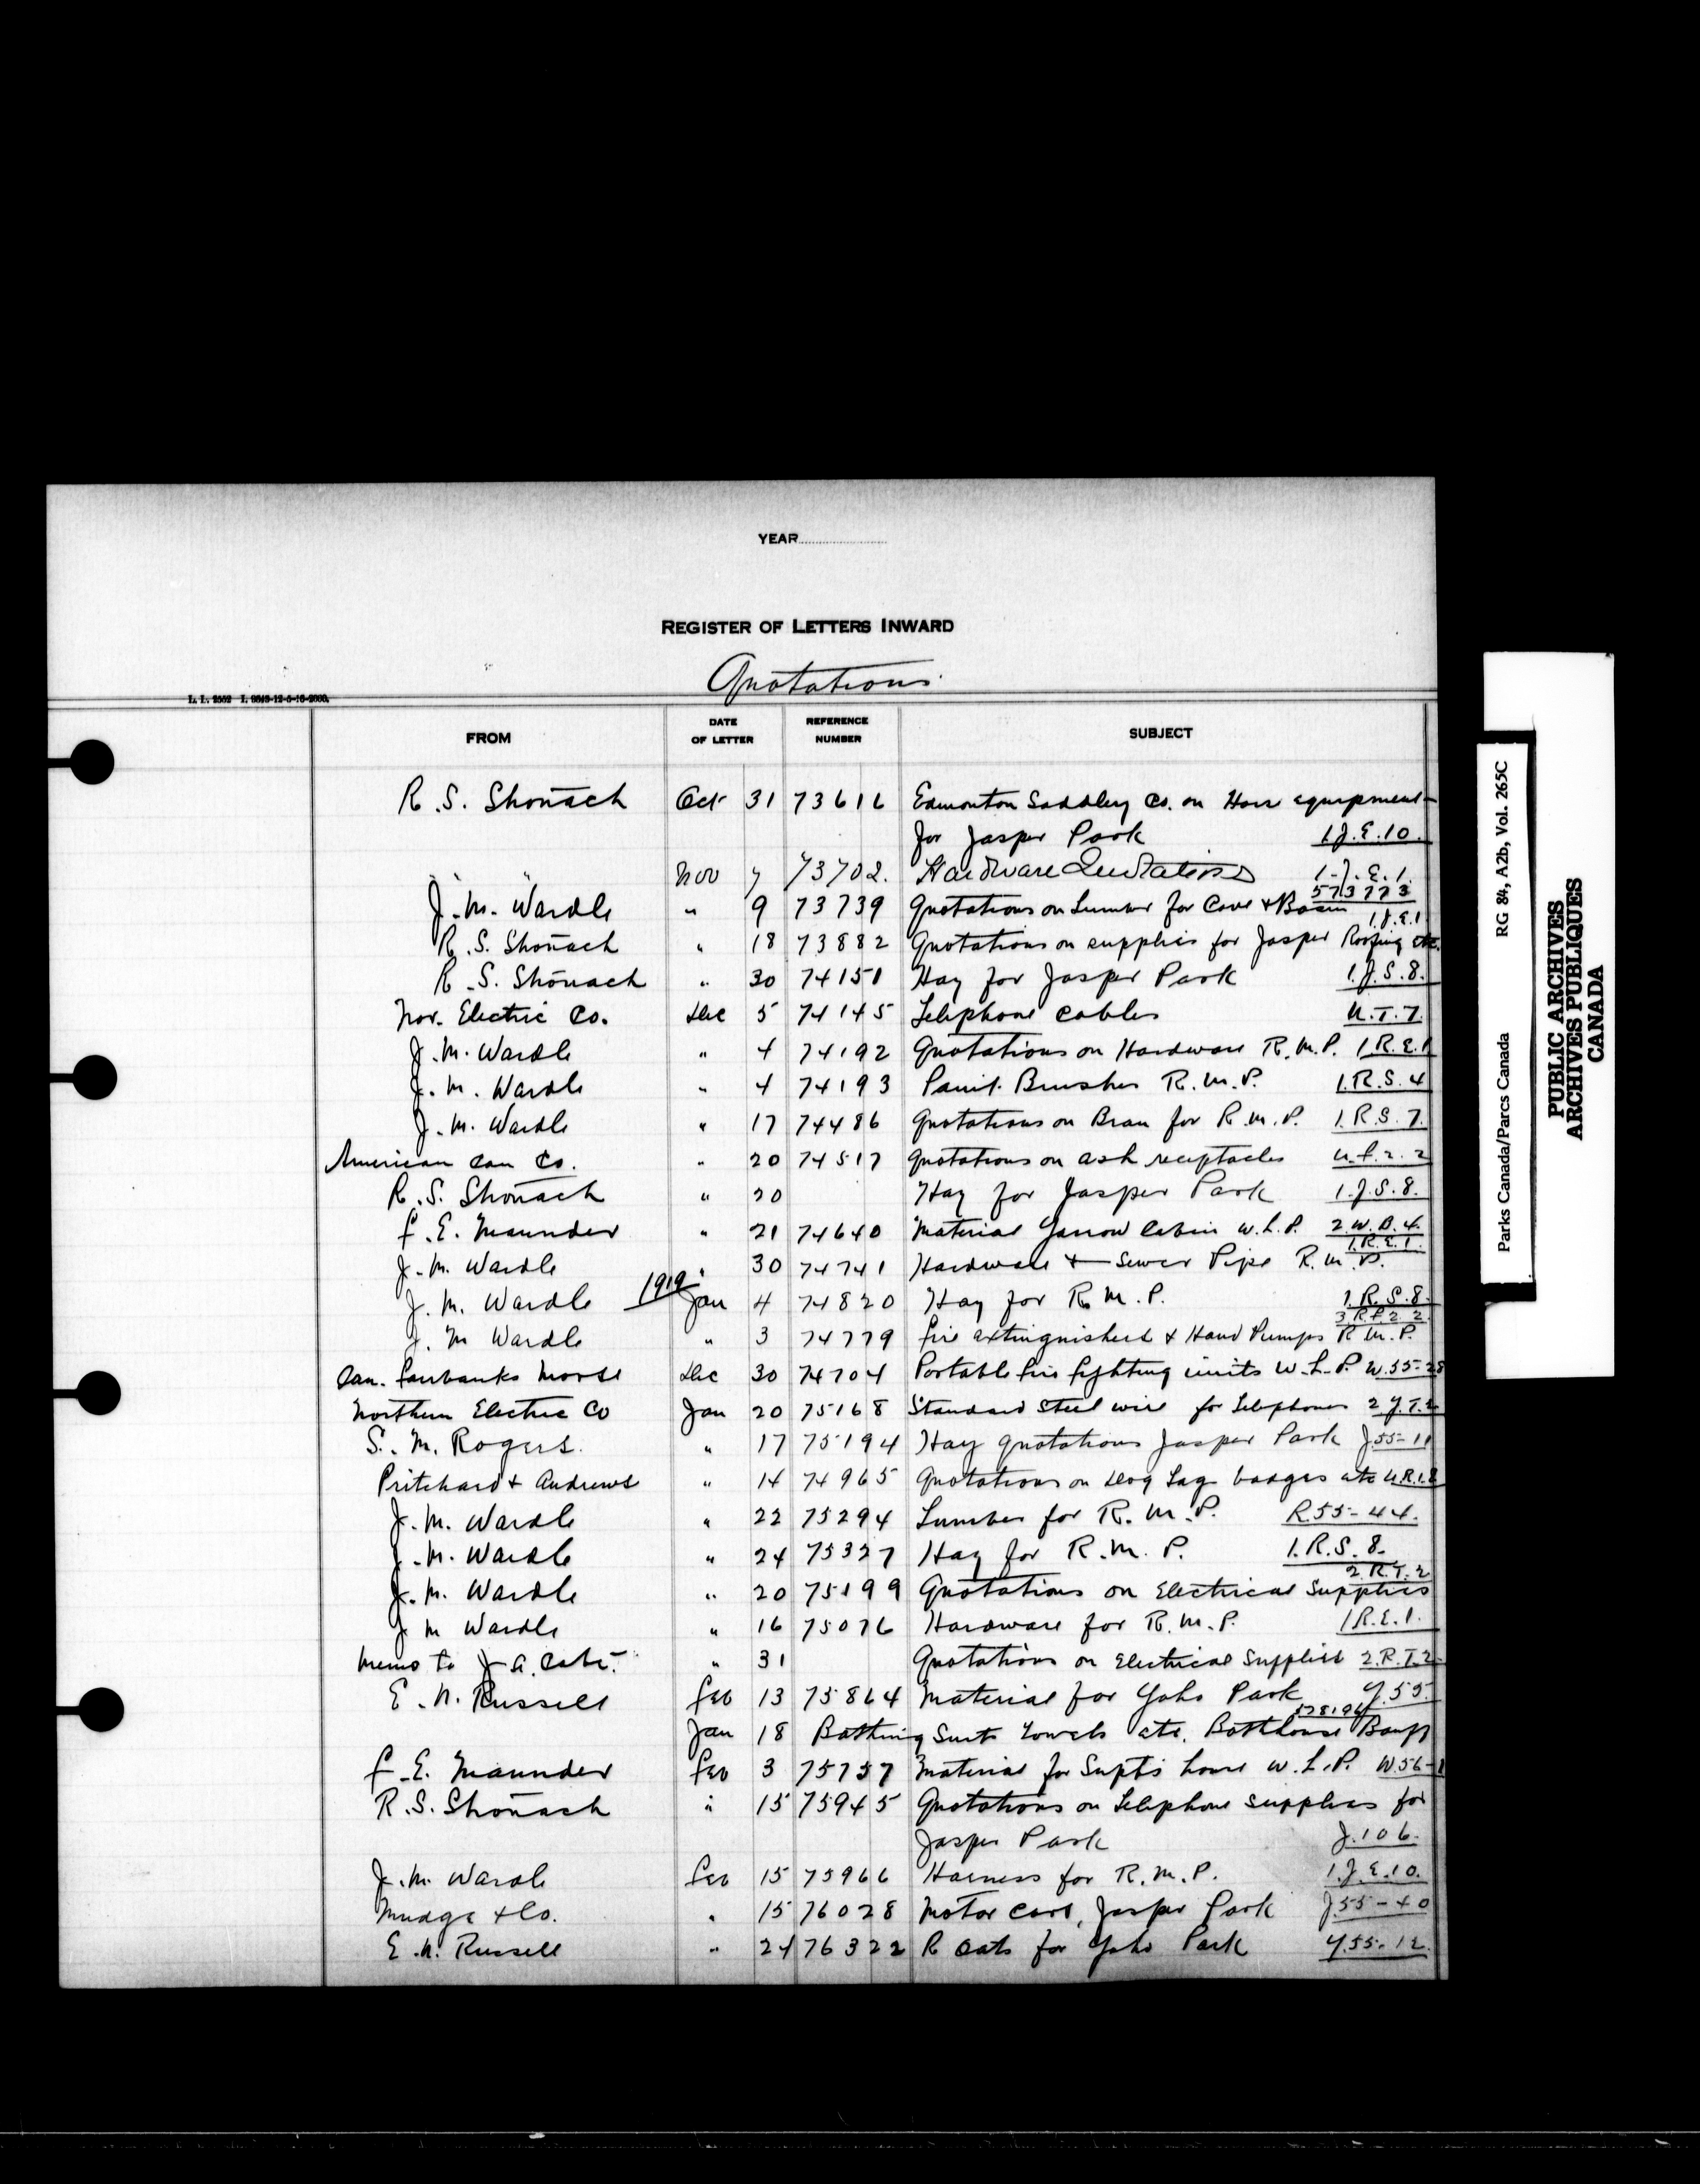 YEAR
REGISTER OF LETTERS INWARD
Quotations
L. L. 2552
FROM DATE OF LETTER REFERENCE NUMBER SUBJECT
R. S. Stronach Oct 31 73616 Edmonton Saddlery Co. on Horse equipment
for Jasper Park 1.J.E.10.
" " Nov 7 73702. Hardware Quotations 1.J.E.1.
573773
J. M. Wardle " 9 73739 Quotations on Lumber for Cave & Basin
1.J.E.1
R. S. Stronach " 18 73882 Quotations on supplies for Jasper Roofing etc.
R. S. Stronach " 30 74151 Hay for Jasper Park 1.J.S.8.
Nor. Electric Co. Dec 5 74145 Telephone Cables U.T.7.
J. M. Wardle " 4 74192 Quotations on Hardware R.M.P. 1.R.E.1
J. M. Wardle " 4 74193 Paint Brushes R.M.P. 1.R.S.4
J. M. Wardle " 17 74486 Quotations on Bran for R.M.P. 1.R.S.7.
American Can Co. " 20 74517 Quotations on ash receptacles U.f.2.2
R. S. Stronach " 20 Hay for Jasper Park 1.J.S.8.
F. E. Maunder " 21 74640 Material Yarrow Cabin W.L.P. 2 W.B.4.
1.R.E.1.
J. M. Wardle " 30 74741 Hardware & Sewer Pipe R.M.P.
1919
J. M. Wardle Jan 4 74820 Hay for R.M.P. 1.R.S.8.
3 R F 2 2
J. M Wardle " 3 74779 Fire extinguishers & Hand Pumps R.M.P.
Can. Fairbanks Morse Dec 30 74704 Portable fire fighting units W.L.P. W.55-28
Northern Electric Co Jan 20 75168 Standard Steel wire for Telephones 2.J.T.2
S. M. Rogers. " 17 75194 Hay quotations Jasper Park J55-11
Pritchard & Andrews " 14 74965 Quotations on Dog Tag badges etc U.R.1.8
J. M. Wardle " 22 75294 Lumber for R.M.P. R55-44.
J. M. Wardle " 24 75327 Hay for R.M.P. 1.R.S.8.
2.R.T.2
J. M. Wardle " 20 75199 Quotations on Electrical Supplies
J M Wardle " 16 75076 Hardware for R.M.P. 1R.E.1.
Memo to J. A. " 31 Quotations on Electrical Supplies 2.R.T.2.
E. N. Russell Feb 13 75864 Material for Yoho Park Y.55.
Jan 18 Bathing Suits Towels etc. Bathhouse Banff
F. E. Maunder Feb 3 75757 Material for Supt's house W.L.P. W56-1
R. S. Stronach " 15 75945 Quotations on Telephone supplies for
Jasper Park J.106.
J. M. Wardle Feb 15 75966 Harness for R.M.P. 1.J.E.10.
Mudge & Co. " 15 76028 Motor Cars, Jasper Park J55-40
E. N. Russell " 24 76322 R Oats for Yoho Park Y.55-12.
RG 84, A2b, Vol. 265C
Parks Canada/Parcs Canada
PUBLIC ARCHIVES
ARCHIVES PUBLIQUES
CANADA